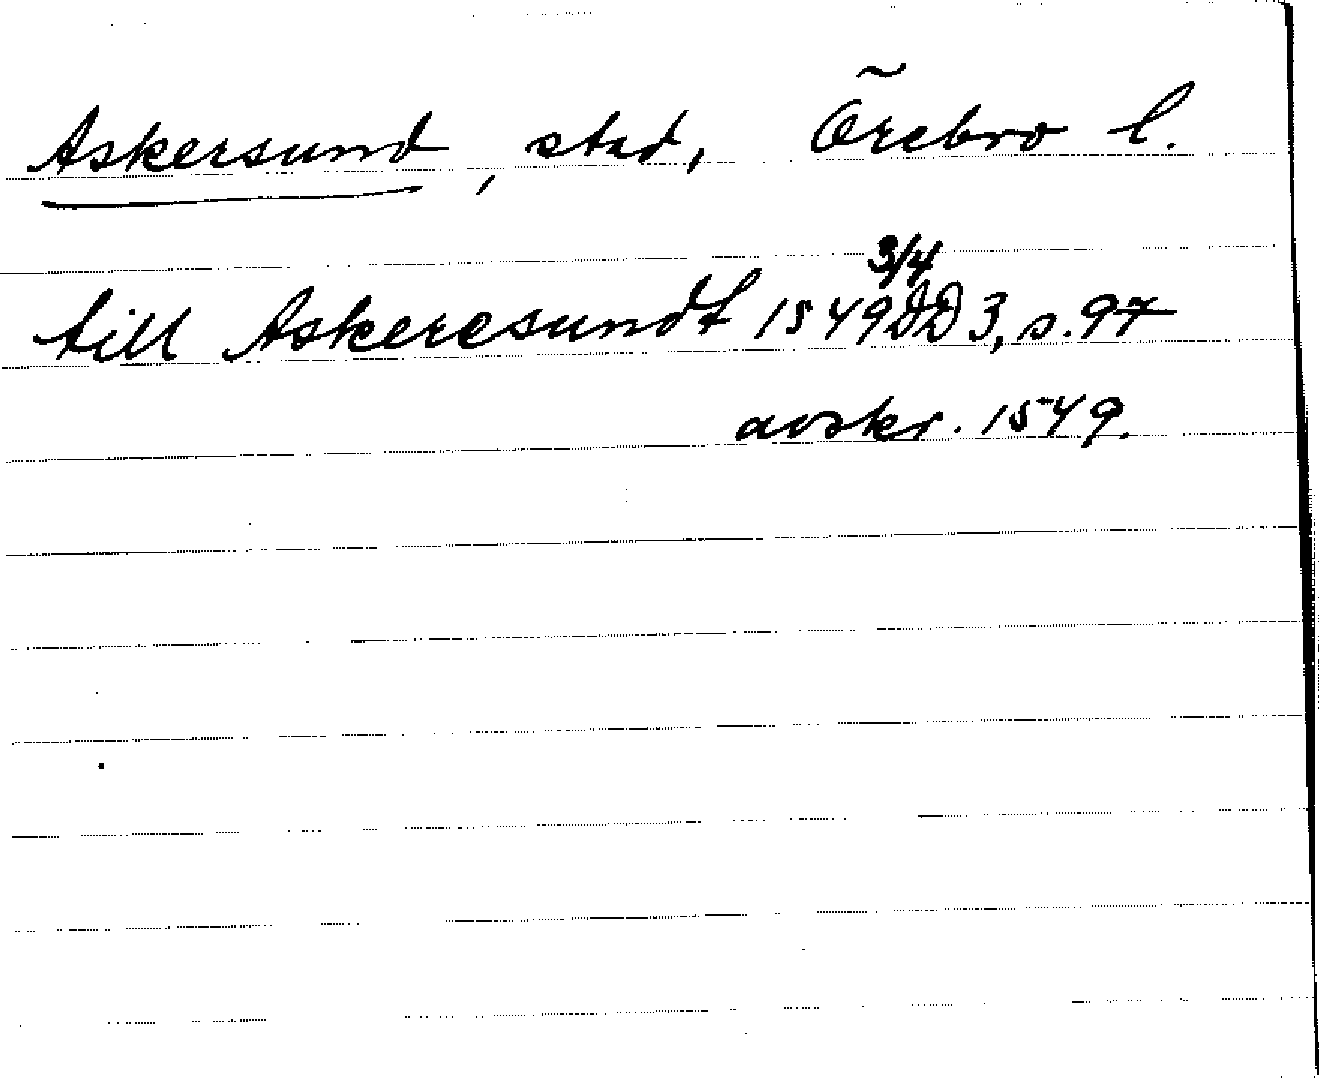 Askersund, stad, Örebro l.
till Askeresundt 1549 3/4 DD 3, s. 97
avskr. 1549.